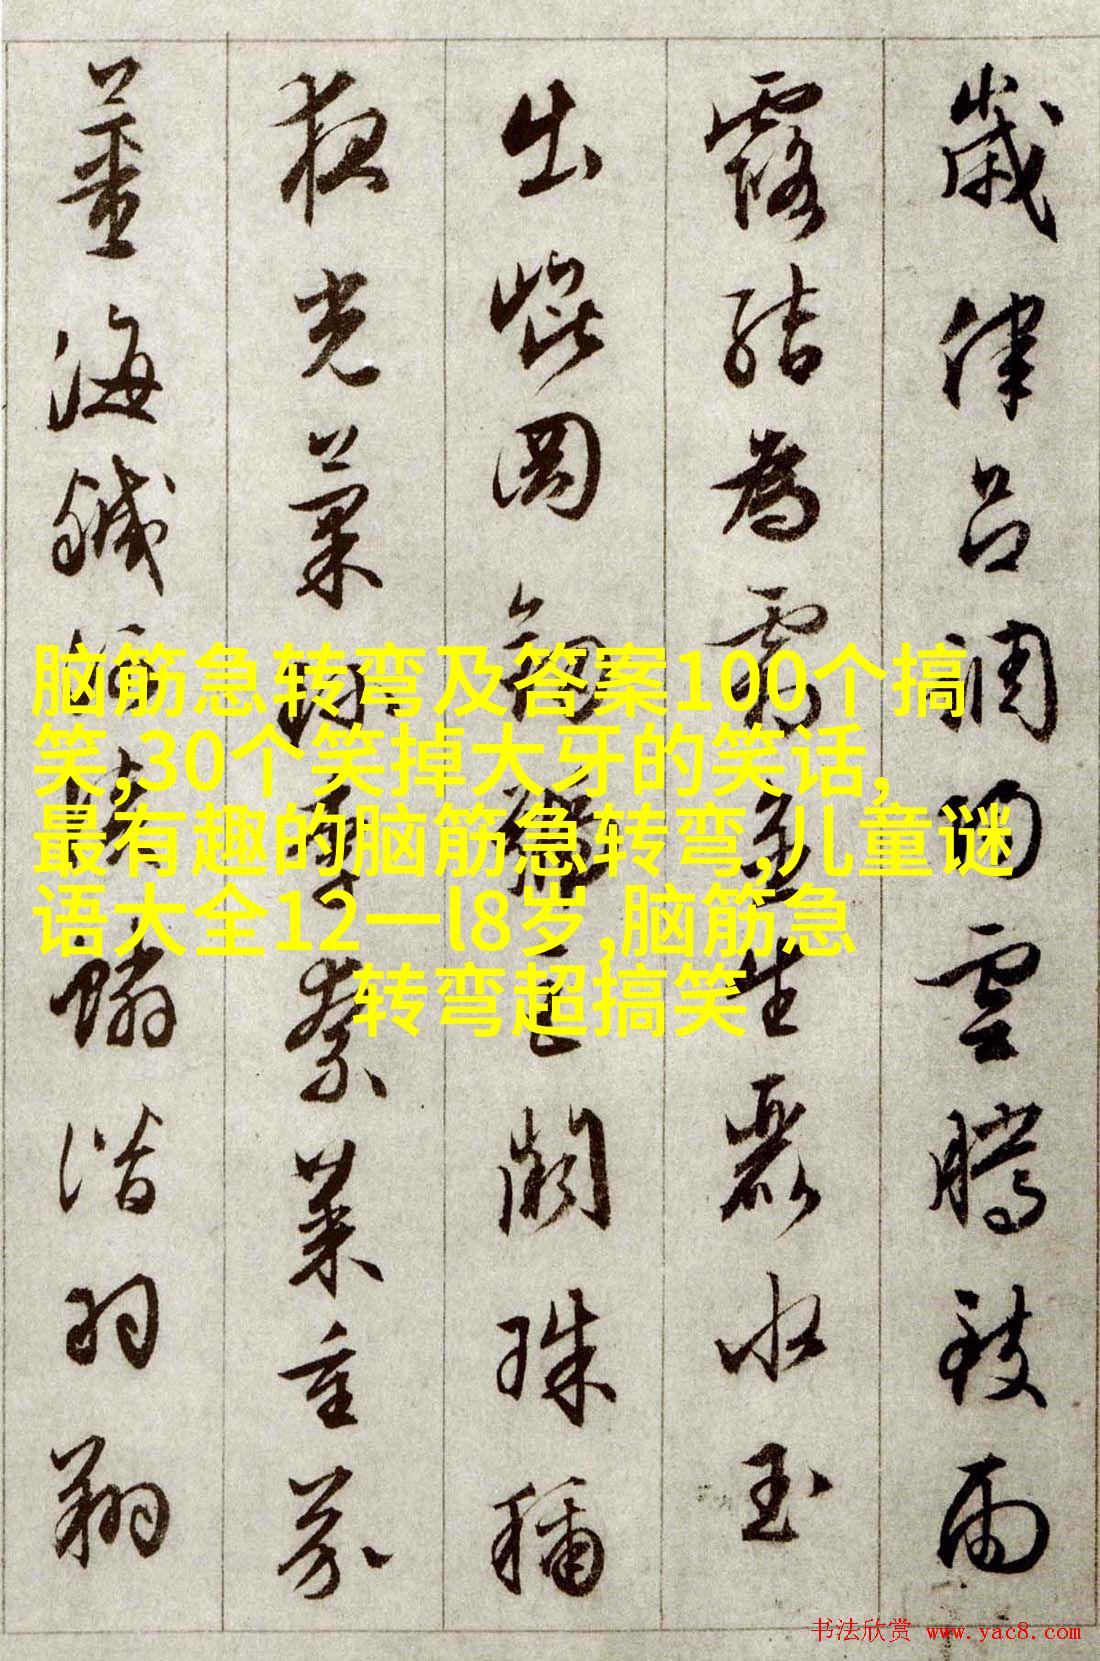 歲律呂調陽雲騰致雨
露結為霜金生麗水玉
出崐岡劍號巨闕珠稱
夜光菓珍李柰菜重芥
薑海鹹河淡鱗潛羽翔
脑筋急转弯及答案100个搞
笑,30个笑掉大牙的笑话,
最有趣的脑筋急转弯,儿童谜
语大全12一l8岁,脑筋急
转弯超搞笑
书法欣赏 www.yac8.com